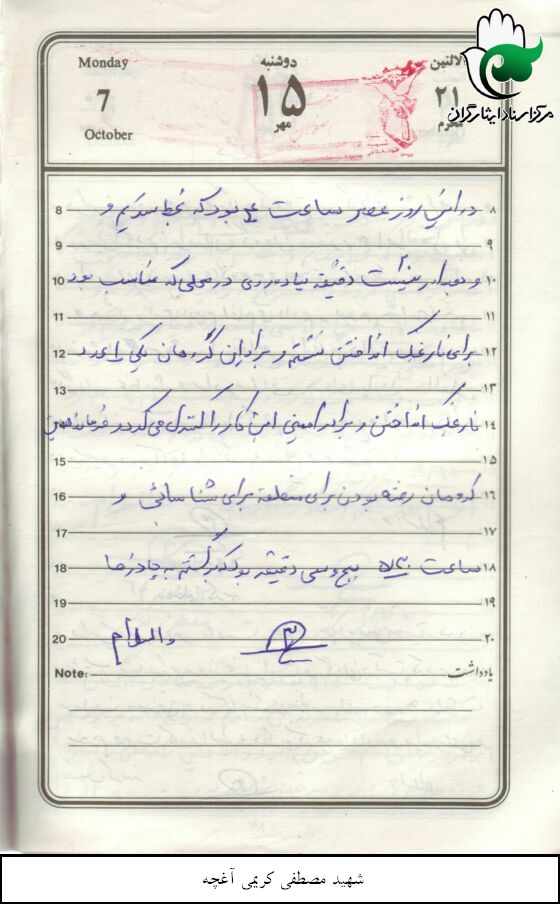 Monday
7
October
دوشنبه
۱۵
مهر
الاثنین
۲۱
محرم
مرکز اسناد ایثارگران
8 در این روز عصر ساعت ۴ بود که بخط شدیم و ۸
9 ۹
10 و بعد از بیست دقیقه پیاده‌روی در محلی که مناسب بود ۱۰
11 ۱۱
12 برای نارنجک انداختن نشستم و برادران گروهان یکی یکی ۱۲
13 ۱۳
14 نارنجک انداختن و برادر امینی این کار را کنترل می‌کرد و فرمانده ۱۴
15 ۱۵
16 گروهان رفته بودن برای منطقه برای شناسائی و ۱۶
17 ۱۷
18 ساعت ۵/۳۰ پنج و سی دقیقه بود که برگشتم به چادرها ۱۸
19 ۱۹
20 والسلام ۳ ۲۰
Note: یادداشت
شهید مصطفی کریمی آغچه